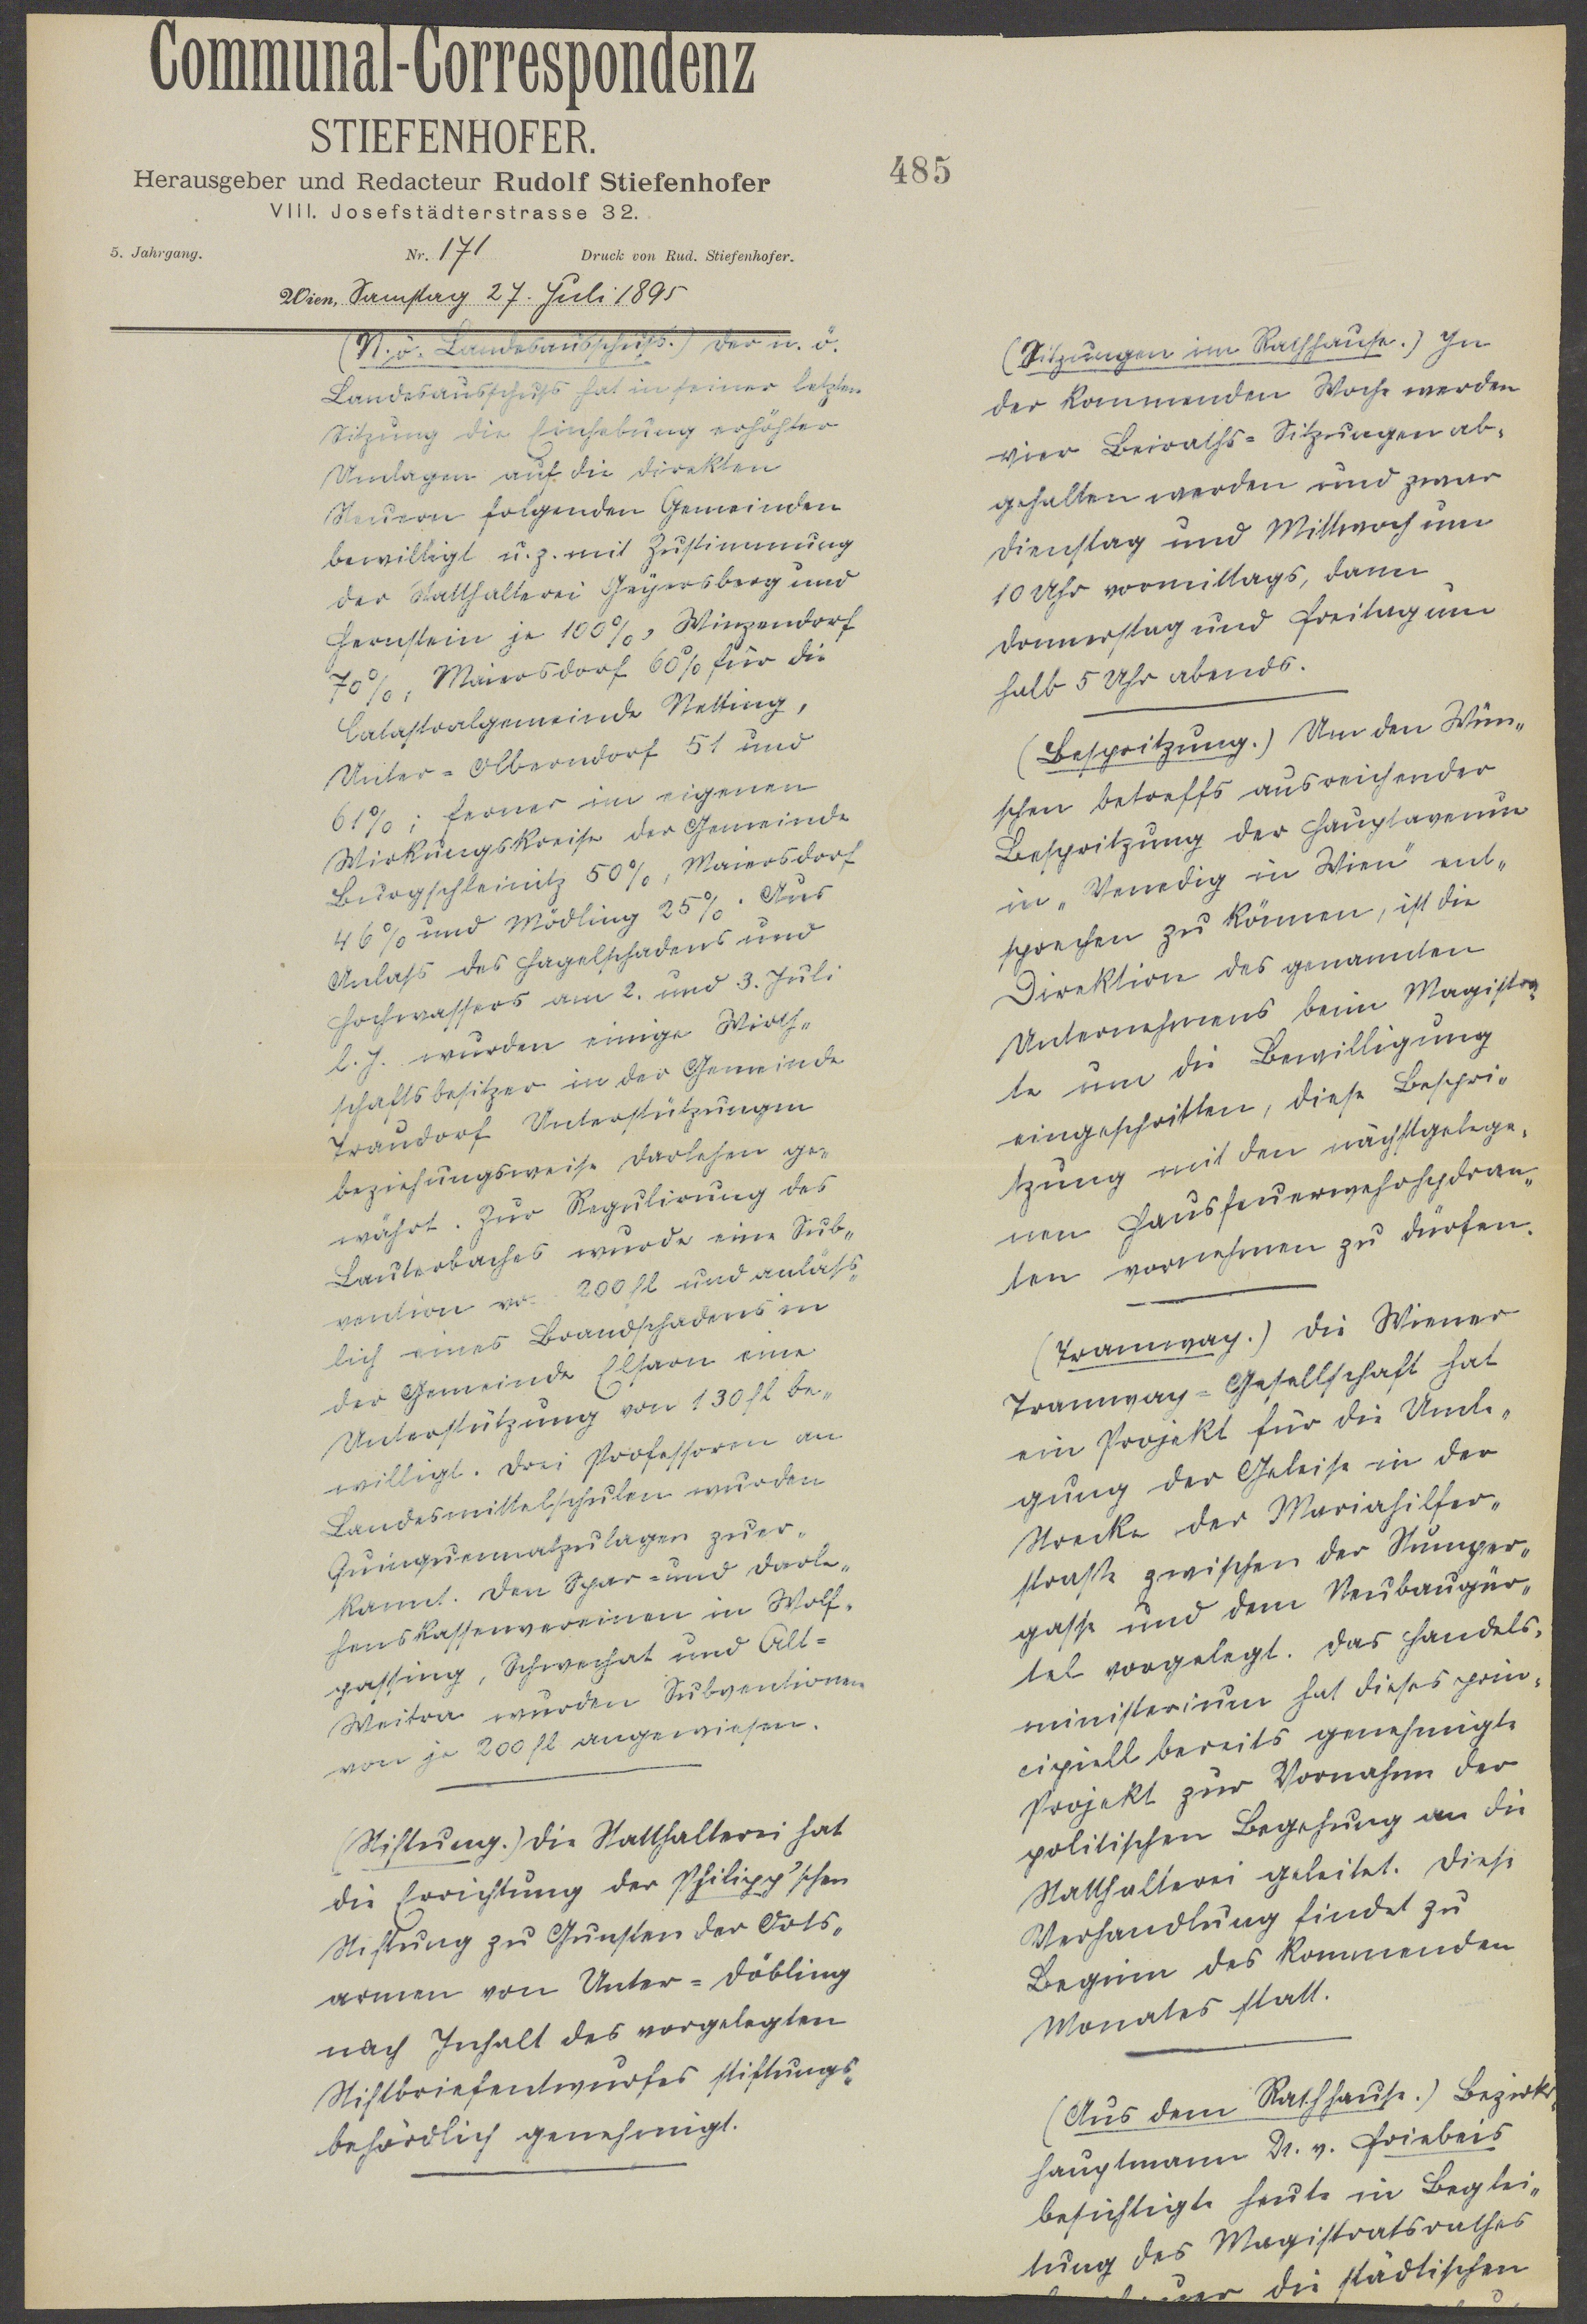 Communal-Correspondenz
STIEFENHOFER.
Herausgeber und Redacteur Rudolf Stiefenhofer
VIII. Josefstädterstrasse 32.
485
5. Jahrgang. Nr. 171 Druck von Rud. Stiefenhofer.
Wien, Samstag 27. Juli 1895
(N. ö. Landesausschuß.) Der n. ö.
Landesausschuß hat in seiner letzten
Sitzung die Einhebung erhöhter
Umlagen auf die direkten
Steuern folgenden Gemeinden
bewilligt u. z. mit Zustimmung
der Statthalterei Geyersberg und
Hernstein je 100%, Winzendorf
70%, Maiersdorf 60% für die
Catastralgemeinde Netting,
Unter-Olberndorf 51 und
61%; ferner im eigenen
Wirkungskreise der Gemeinde
Burgschleinitz 50%, Maiersdorf
46% und Mödling 25%. Aus
Anlaß des Hagelschadens und
Hochwassers am 2. und 3. Juli
l. J. wurden einige Wirth-
schaftsbesitzer in der Gemeinde
Fraundorf Unterstützungen
beziehungsweise Darlehen ge-
währt. Zur Regulirung des
Lauterbaches wurde eine Sub-
vention von 200 fl und anläß-
lich eines Brandschadens in
der Gemeinde Elsarn eine
Unterstützung von 130 fl be-
willigt. Drei Professoren an
Landesmittelschulen wurden
Quinquennalzulagen zuer-
kannt. Den Spar- und Darle-
henskassenvereinen in Wolf-
passing, Schwechat und Alt-
Weitra wurden Subventionen
von je 200 fl angewiesen.
(Stiftung.) Die Statthalterei hat
die Errichtung der Philipp'schen
Stiftung zu Gunsten der Orts-
armen von Unter-Döbling
nach Inhalt des vorgelegten
Stiftbriefentwurfes stiftungs-
behördlich genehmigt.
(Sitzungen im Rathhause.) In
der kommenden Woche werden
vier Beiraths-Sitzungen ab-
gehalten werden und zwar
Dienstag und Mittwoch um
10 Uhr vormittags, dann
Donnerstag und Freitag um
halb 5 Uhr abends.
(Bespritzung.) Um den Wün-
schen betreffs ausreichender
Bespritzung der Hauptavenue
in „Venedig in Wien" ent-
sprechen zu können, ist die
Direktion des genannten
Unternehmens beim Magistra-
te um die Bewilligung
eingeschritten, diese Bespri-
tzung mit den nächstgelege-
nen Hausfeuerwehrhydran-
ten vornehmen zu dürfen.
(Tramway.) Die Wiener
Tramway-Gesellschaft hat
ein Projekt für die Umle-
gung der Geleise in der
Strecke der Mariahilfer-
straße zwischen der Stumper-
gasse und dem Neubaugür-
tel vorgelegt. Das Handels-
ministerium hat dieses prin-
cipiell bereits genehmigte
Projekt zur Vornahme der
politischen Begehung an die
Statthalterei geleitet. Diese
Verhandlung findet zu
Beginn des kommenden
Monates statt.
(Aus dem Rathhause.) Bezirks-
hauptmann Dr. v. Friebeis
besichtigte heute in Beglei-
tung des Magistratsrathes
die städtischen